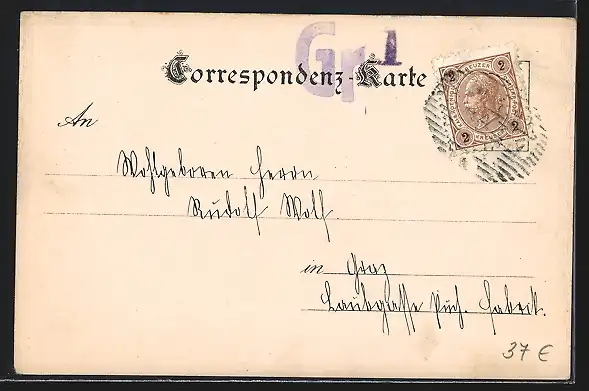 Gr 1
Correspondenz-Karte
2 KREUZER 2
2 KREUZER 2
An
Wohlgeboren Herrn
Rudolf Wolf.
in Graz
Laubgasse Puch. Fabrik.
37 €